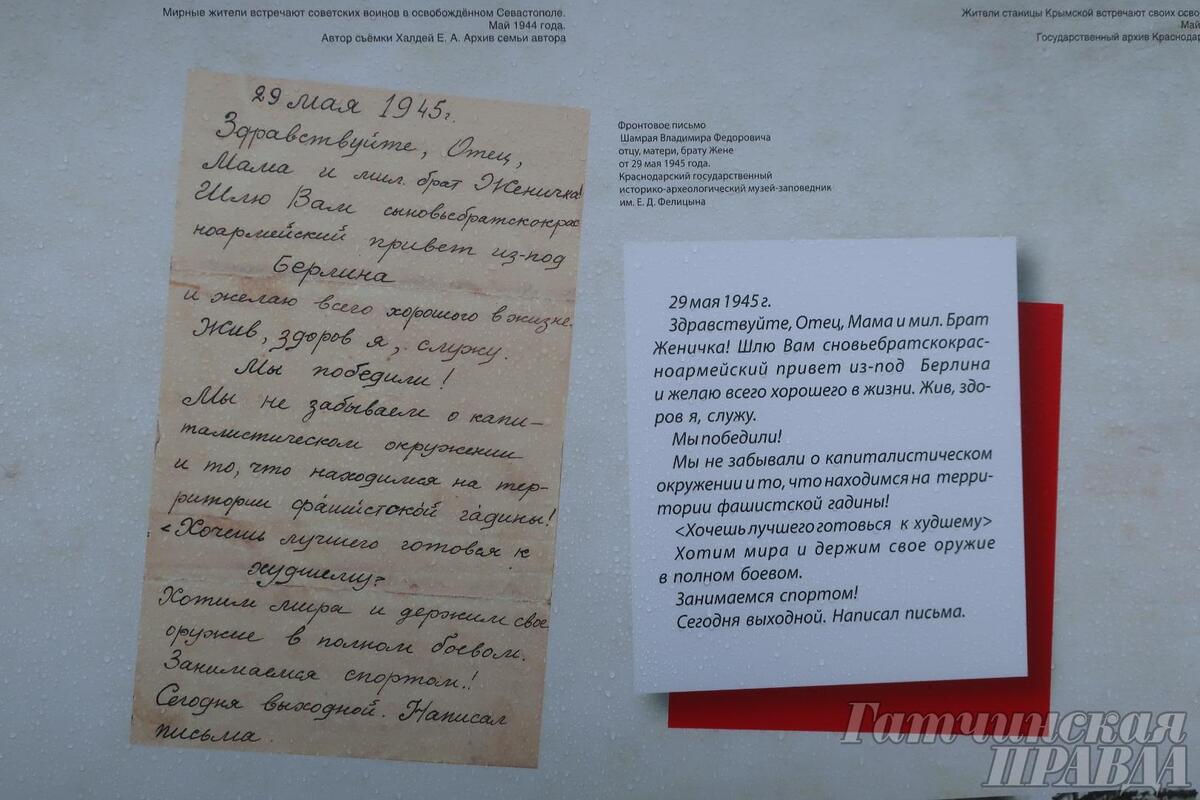 Мирные жители встречают советских воинов в освобождённом Севастополе.
Май 1944 года.
Автор съёмки Халдей Е. А. Архив семьи автора
Жители станицы Крымской встречают своих осво
Май
Государственный архив Краснодар
29 мая 1945г.
Здравствуйте, Отец,
Мама и мил. брат Женичка!
Шлю Вам сыновьебратскокрас
ноармейский привет из-под
Берлина
и желаю всего хорошого в жизне.
Жив, здоров я, служу.
Мы победили!
Мы не забываем о капи-
талистическом окружении
и то, что находимся на тер-
ритории фашистской гадины!
<Хочешь лучшего готовся к
худшему>
Хотим мира и держим свое
оружие в полном боевом.
Занимаемся спортом!!
Сегодня выходной. Написал
письма.
Фронтовое письмо
Шамрая Владимира Федоровича
отцу, матери, брату Жене
от 29 мая 1945 года.
Краснодарский государственный
историко-археологический музей-заповедник
им. Е. Д. Фелицына
29 мая 1945 г.
Здравствуйте, Отец, Мама и мил. Брат
Женичка! Шлю Вам сновьебратскокрас-
ноармейский привет из-под Берлина
и желаю всего хорошего в жизни. Жив, здо-
ров я, служу.
Мы победили!
Мы не забывали о капиталистическом
окружении и то, что находимся на терри-
тории фашистской гадины!
<Хочешь лучшего готовься к худшему>
Хотим мира и держим свое оружие
в полном боевом.
Занимаемся спортом!
Сегодня выходной. Написал письма.
Гатчинская
ПРАВДА